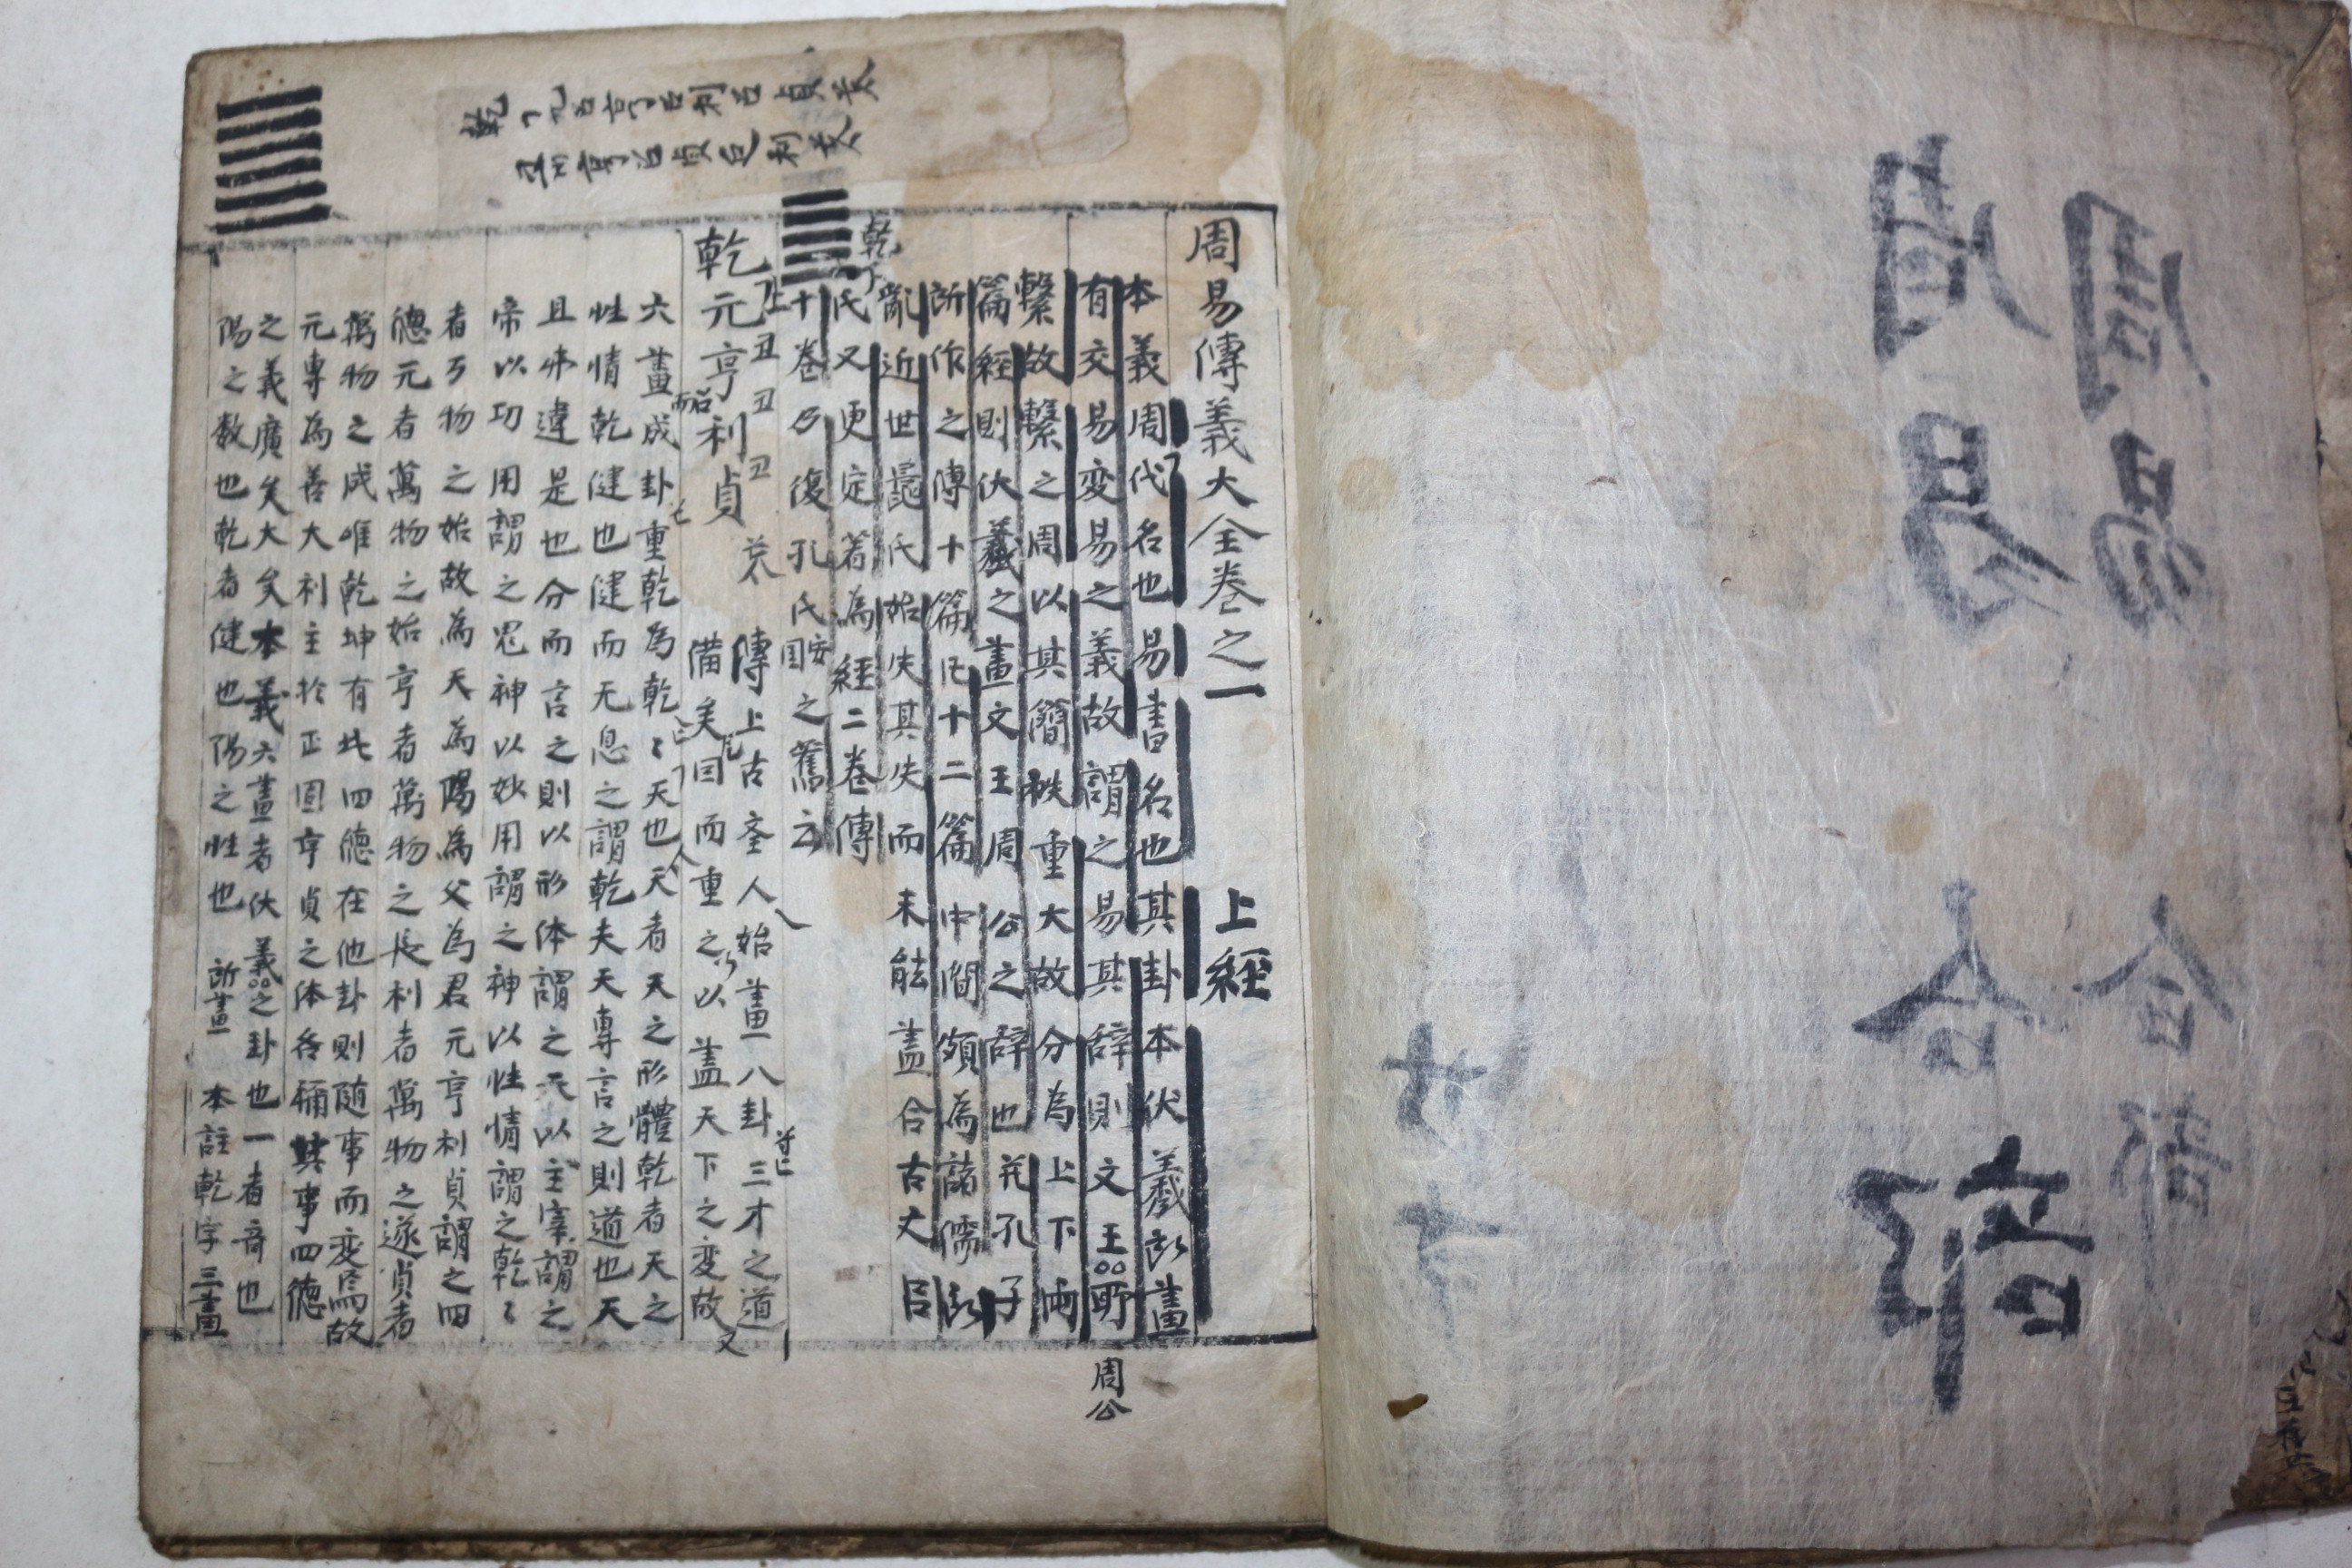 周易
合部
周易
合部
周易傳義大全卷之一 上經
本義周代名也易書名也其卦本伏羲所畫
有交易変易之義故謂之易其辞則文王所
周公
繫故繫之周以其簡袟重大故分為上下兩
篇經則伏羲之畫文王周公之辞也并孔子
所作之傳十篇凡十二篇中間頗為諸儒所
亂近世晁氏始失其失而未能盖合古文呂
氏又更定著為經二卷傳
十卷乃復孔氏安国之舊云
乾
乾元亨利貞
傳上古圣人始畫八卦三才之道
備矣因而重之以盖天下之変故
六畫成卦重乾為乾〻天也天者天之形體乾者天之
性情乾健也健而无息之謂乾夫天專言之則道也天
且弗違是也分而言之則以形体謂之天以主宰謂之
帝以功用謂之鬼神以妙用謂之神以性情謂之乾〻
者万物之始故為天為陽為父為君元亨利貞謂之四
德元者萬物之始亨者萬物之長利者萬物之遂貞者
萬物之成唯乾坤有此四德在他卦則随事而変焉故
元專為善大利主於正固亨貞之体各稱其事四德
之義廣矣大矣本義六畫者伏義之卦也一者奇也
陽之数也乾者健也陽之性也 所畫 本註乾字三畫